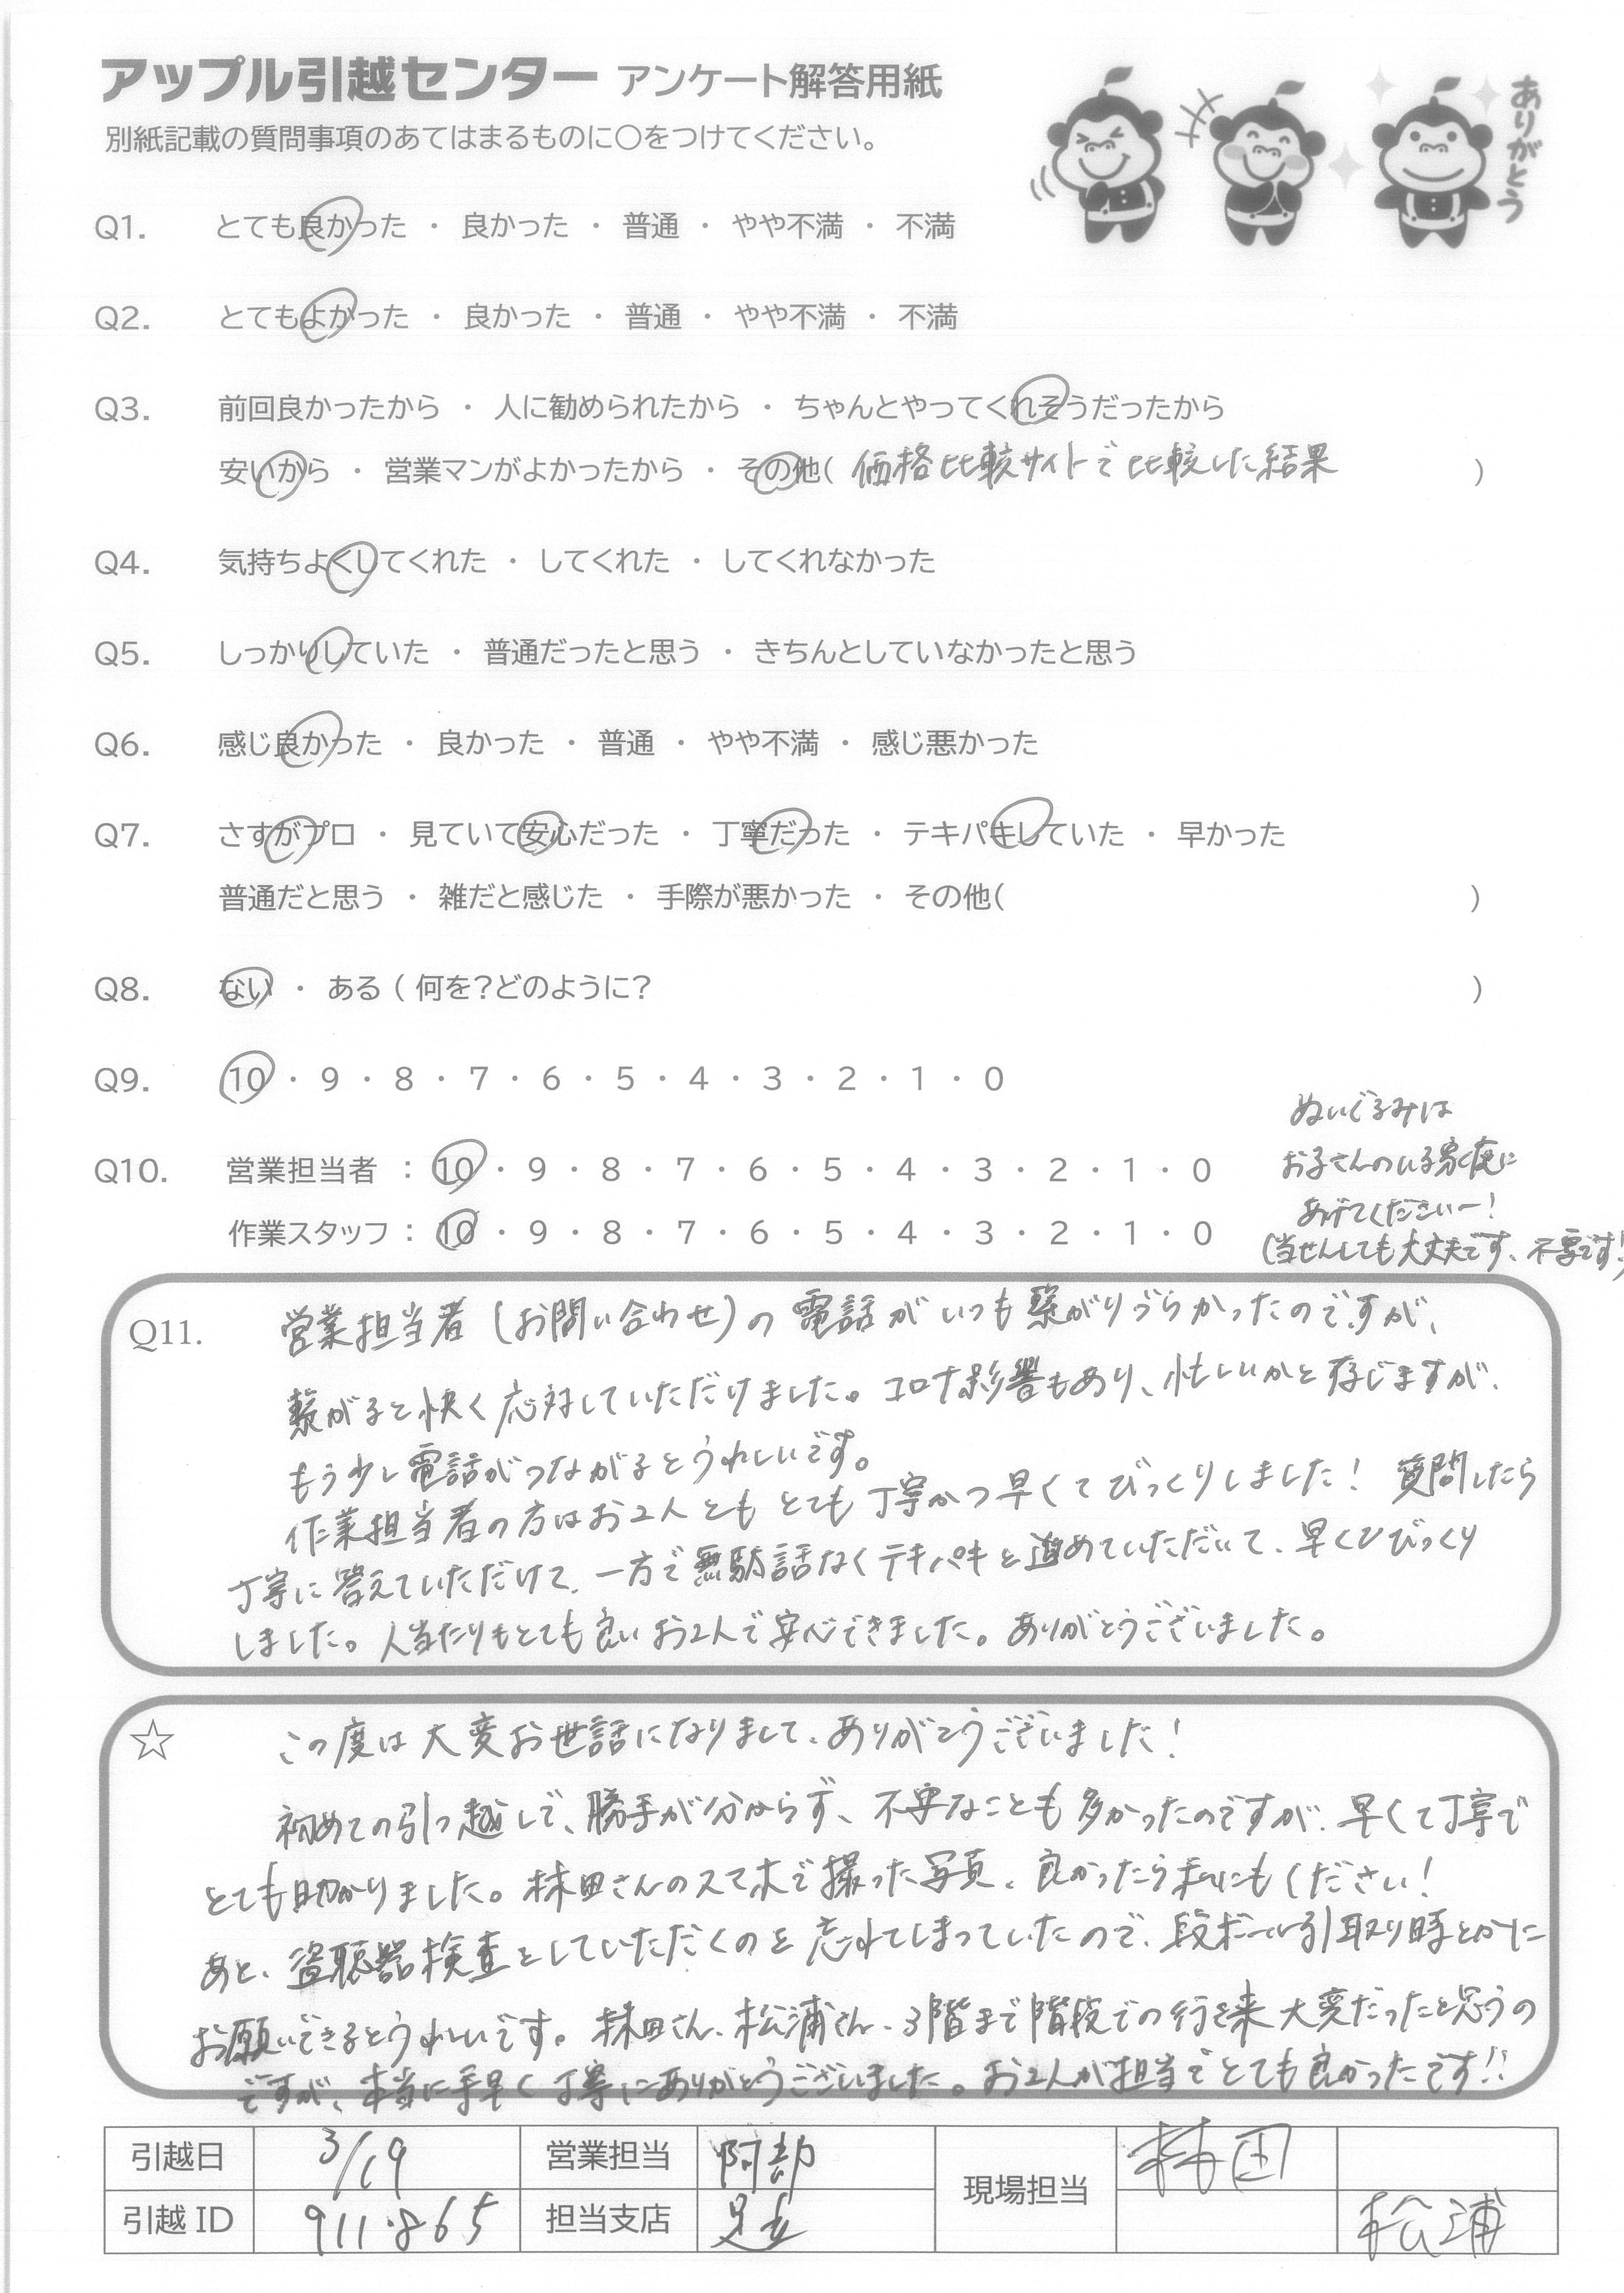 アップル引越センター アンケート解答用紙
ありがとう
別紙記載の質問事項のあてはまるものに○をつけてください。
Q1. とても良かった ・ 良かった ・ 普通 ・ やや不満 ・ 不満
Q2. とてもよかった ・ 良かった ・ 普通 ・ やや不満 ・ 不満
Q3. 前回良かったから ・ 人に勧められたから ・ ちゃんとやってくれそうだったから
安いから ・ 営業マンがよかったから ・ その他( 価格比較サイトで比較した結果 )
Q4. 気持ちよくしてくれた ・ してくれた ・ してくれなかった
Q5. しっかりしていた ・ 普通だったと思う ・ きちんとしていなかったと思う
Q6. 感じ良かった ・ 良かった ・ 普通 ・ やや不満 ・ 感じ悪かった
Q7. さすがプロ ・ 見ていて安心だった ・ 丁寧だった ・ テキパキしていた ・ 早かった
普通だと思う ・ 雑だと感じた ・ 手際が悪かった ・ その他( )
Q8. ない ・ ある ( 何を?どのように? )
Q9. 10 ・ 9 ・ 8 ・ 7 ・ 6 ・ 5 ・ 4 ・ 3 ・ 2 ・ 1 ・ 0
Q10. 営業担当者 : 10 ・ 9 ・ 8 ・ 7 ・ 6 ・ 5 ・ 4 ・ 3 ・ 2 ・ 1 ・ 0
作業スタッフ : 10 ・ 9 ・ 8 ・ 7 ・ 6 ・ 5 ・ 4 ・ 3 ・ 2 ・ 1 ・ 0
ぬいぐるみは
お子さんのいる家庭に
あげてくださいー!
(当せんしても大丈夫です、不要です!)
Q11. 営業担当者(お問い合わせ)の電話がいつも繋がりづらかったのですが、
繋がると快く応対していただけました。コロナ影響もあり、忙しいかと存じますが、
もう少し電話がつながるとうれしいです。
作業担当者の方はお2人ともとても丁寧かつ早くてびっくりしました! 質問したら
丁寧に答えていただけて、一方で無駄話なくテキパキと進めていただいて、早くてびっくり
しました。人当たりもとても良いお2人で安心できました。ありがとうございました。
☆ この度は大変お世話になりまして、ありがとうございました!
初めての引っ越しで、勝手が分からず、不安なことも多かったのですが、早くて丁寧で
とても助かりました。林田さんのスマホで撮った写真、良かったら私にもください!
あと、盗聴器検査をしていただくのを忘れてしまっていたので、段ボール引取り時とかに
お願いできるとうれしいです。林田さん、松浦さん、3階まで階段での行き来大変だったと思うの
ですが、本当に手早く丁寧にありがとうございました。お2人が担当でとても良かったです!!
引越日 3/19 営業担当 阿部 現場担当 林田
引越ID 911865 担当支店 足立 松浦